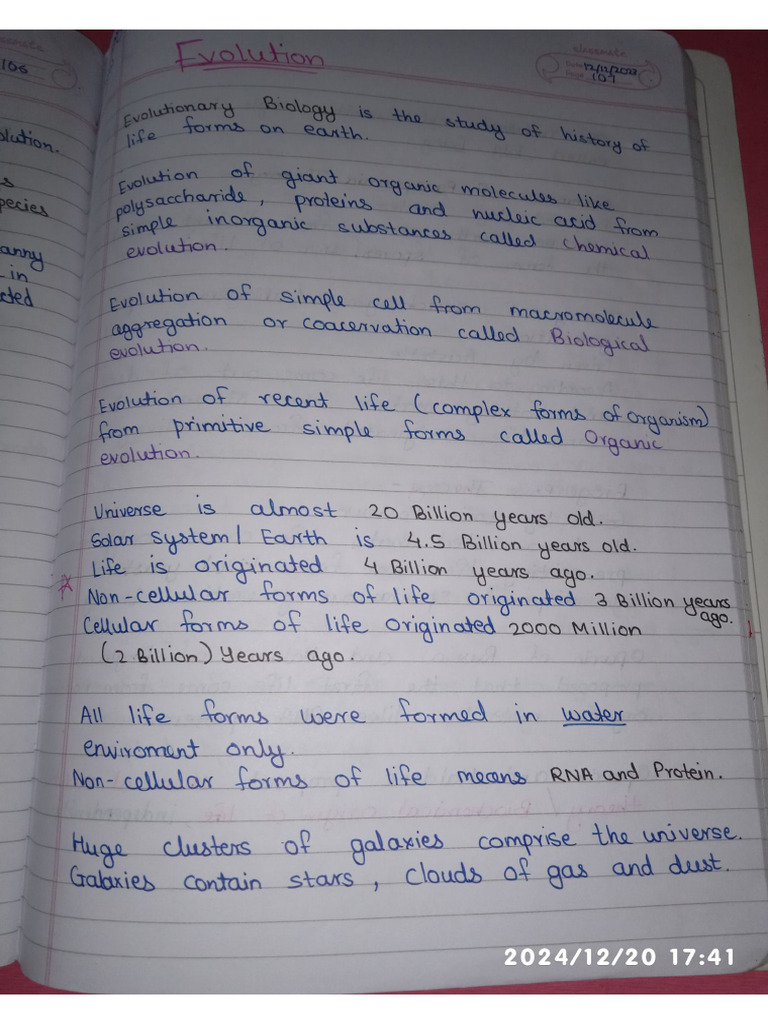 106
olution.
s
pecies
anny
in
cted
Evolution
classmate
Date 12/12/2022
Page 107
Evolutionary Biology is the study of history of
life forms on earth.
Evolution of giant organic molecules like
polysaccharide, proteins and nucleic acid from
simple inorganic substances called chemical
evolution.
Evolution of simple cell from macromolecule
aggregation or coacervation called Biological
evolution.
Evolution of recent life (complex forms of organism)
from primitive simple forms called Organic
evolution.
Universe is almost 20 Billion years old.
Solar system/ Earth is 4.5 Billion years old.
Life is originated 4 Billion years ago.
Non-cellular forms of life originated 3 Billion years
ago.
Cellular forms of life originated 2000 Million
(2 Billion) Years ago.
All life forms were formed in water
enviroment only.
Non-cellular forms of life means RNA and Protein.
Huge clusters of galaxies comprise the universe.
Galaxies contain stars, clouds of gas and dust.
2024/12/20 17:41